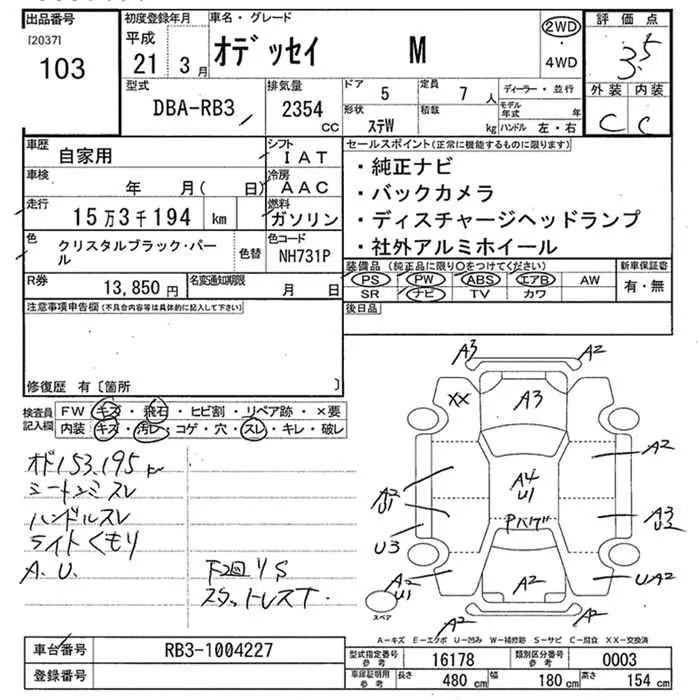 出品番号
[2037]
103
初度登録年月
平成
21 3月
車名・グレード
オデッセイ M
2WD
・
4WD
評価点
3.5
外装 内装
C C
型式
DBA-RB3
排気量
2354
CC
ドア 5
定員 7人
ディーラー・並行
形状 ステW
積載 kg
モデル年式 年
ハンドル 左・右
車歴 自家用
シフト IAT
車検 年 月( 日)
冷房 AAC
走行 15万3千194 km
燃料 ガソリン
色 クリスタルブラック・パール
色替
色コード NH731P
R券 13,850円
名変通知期限 月 日
セールスポイント(正常に機能するものに限ります)
・純正ナビ
・バックカメラ
・ディスチャージヘッドランプ
・社外アルミホイール
装備品(純正品に限り○をつけてください)
PS PW ABS エアB AW
SR ナビ TV カワ
新車保証書
有・無
後日品
注意事項申告欄(不具合内容等は具体的に記入して下さい)
修復歴 有〔箇所 〕
検査員記入欄
FW キズ・飛石・ヒビ割・リペア跡・×要
内装 キズ・汚レ・コゲ・穴・スレ・キレ・破レ
オド153,195km
シートシミスレ
ハンドルスレ
ライトくもり
A.U.
下回りS
スタットレスT.
A3 A2
XX A3
A2
A4
U1
A2
U1
Pハゲ
A3
U2
U3
A2
U1
A2
UA2
A2 A2
スペア
A-キズ E-エクボ U-凹み W-補修跡 S-サビ C-腐食 XX-交換済
車台番号 RB3-1004227
登録番号
型式指定番号 参考 16178
類別区分番号 参考 0003
車庫証明用 参考 長さ 480 cm 幅 180 cm 高さ 154 cm